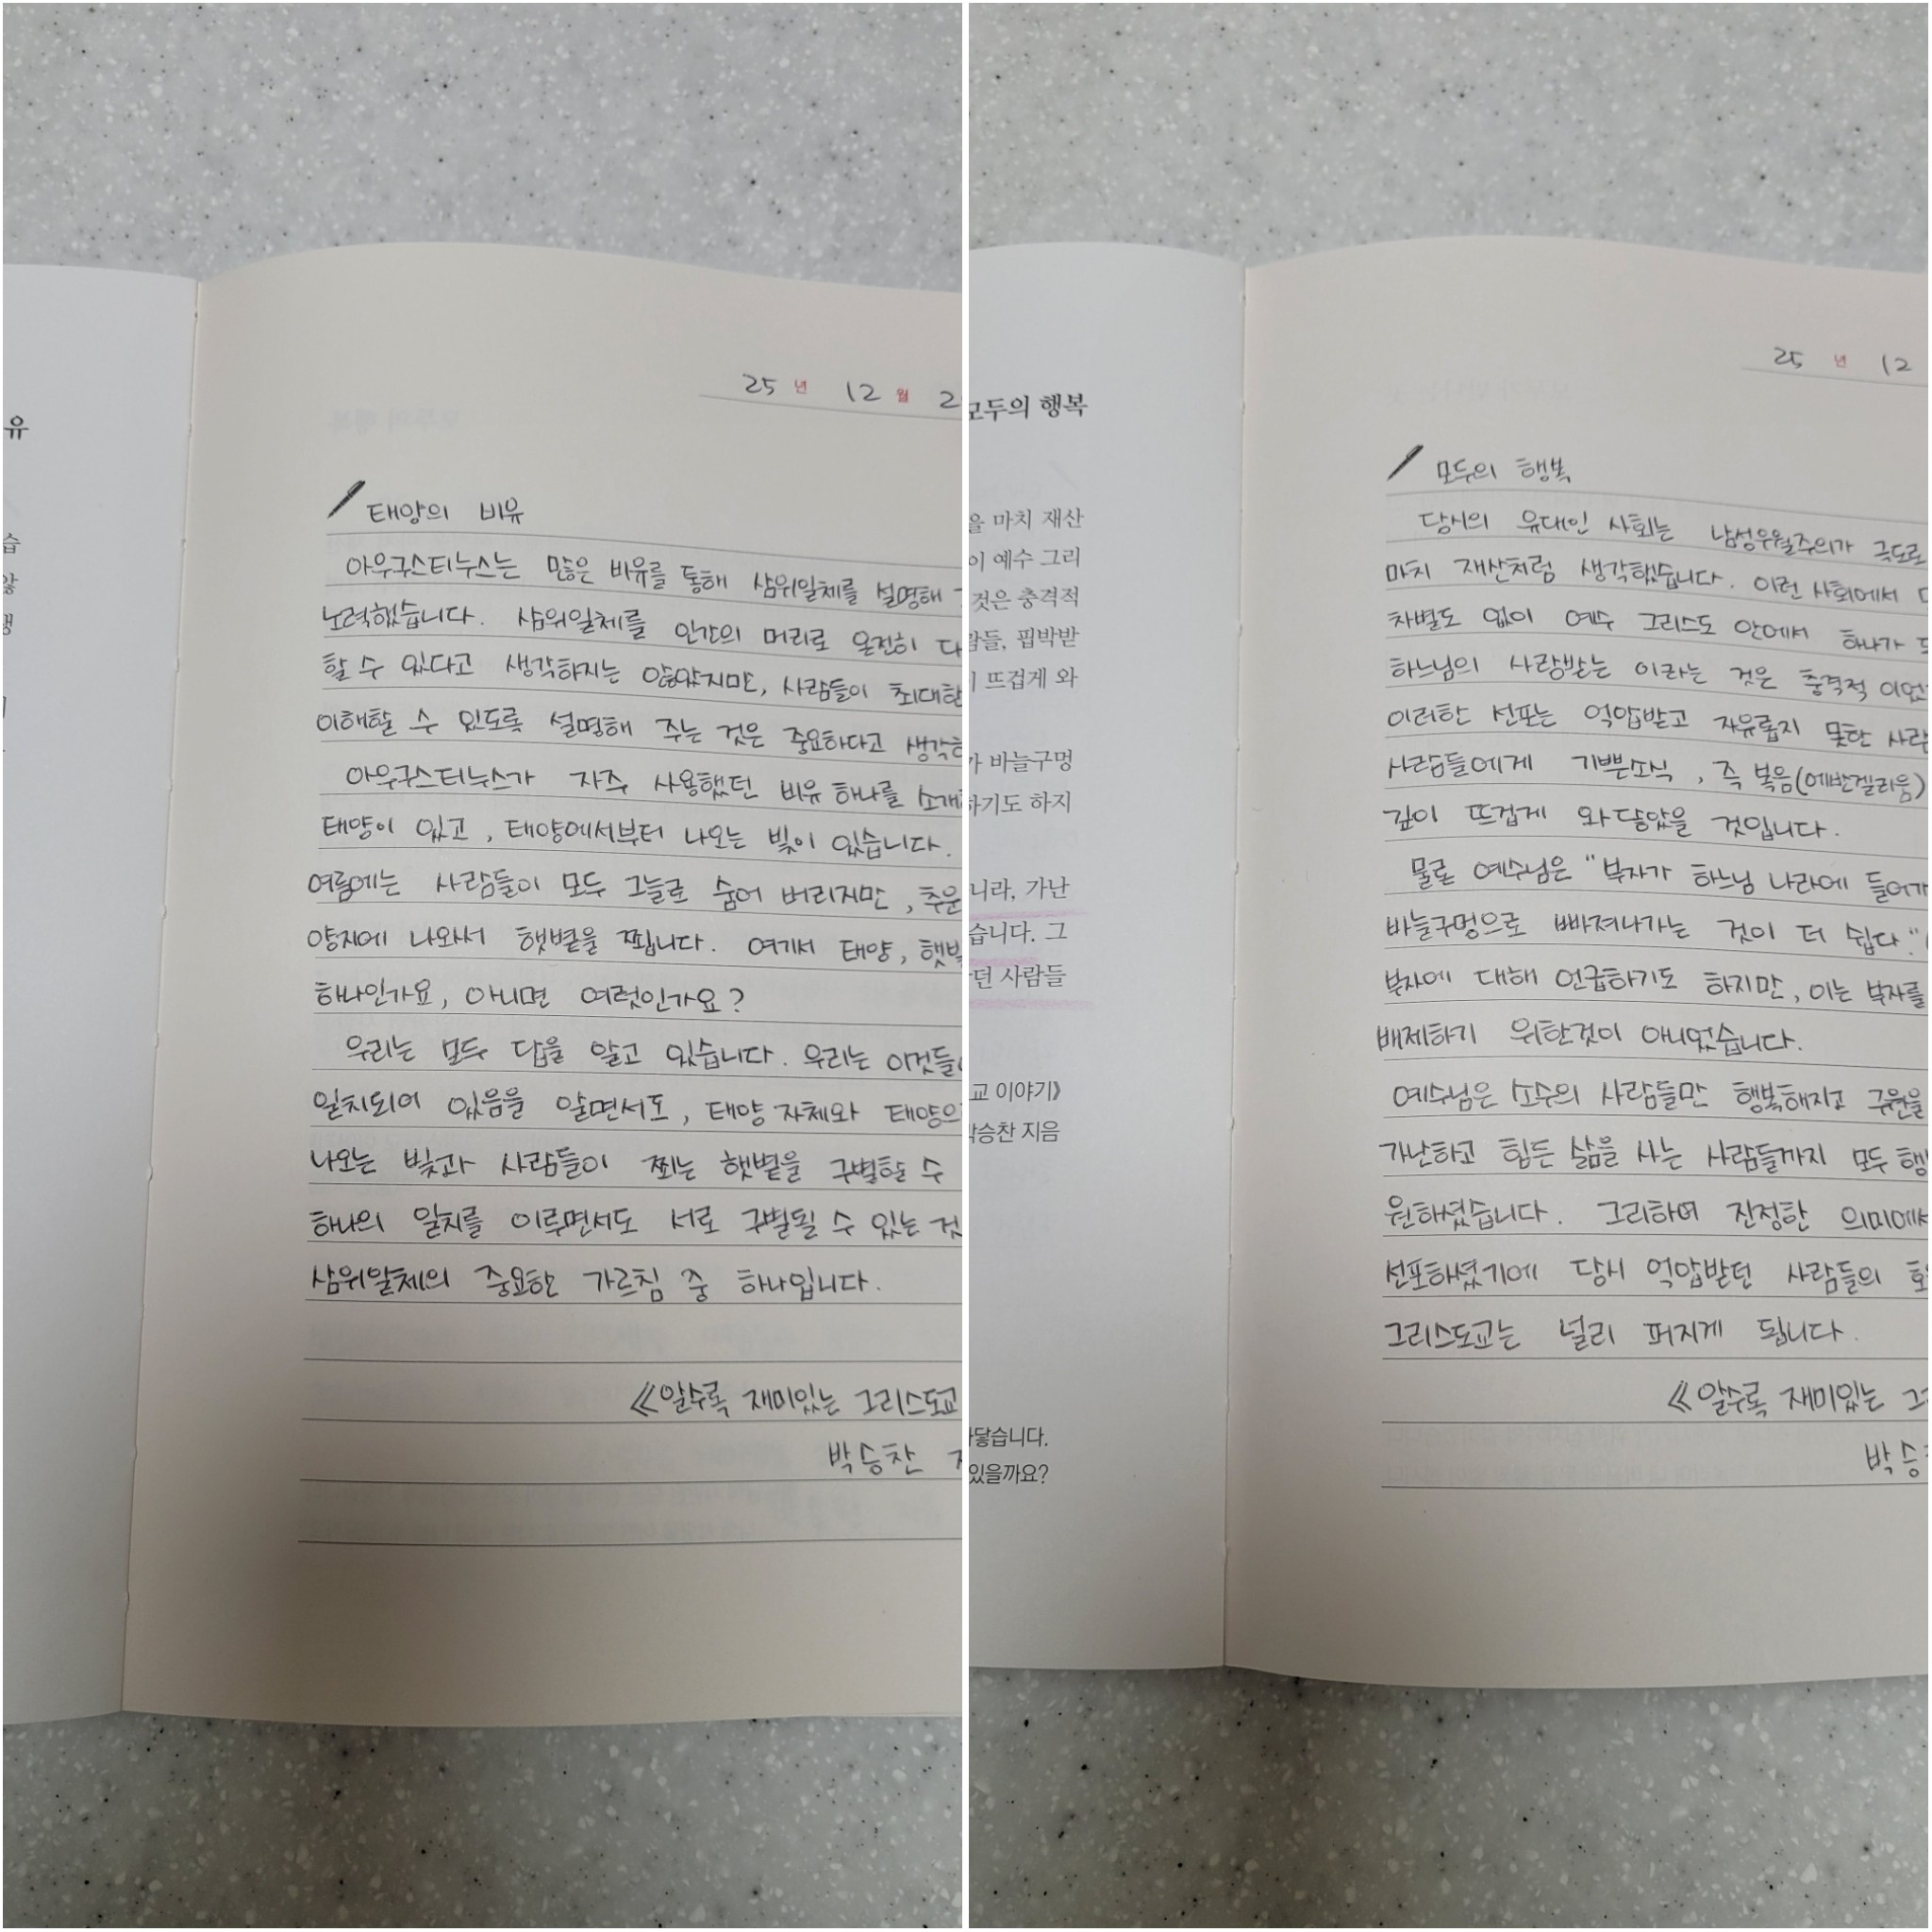 유
습
25 년 12 월 2
태양의 비유
아우구스티누스는 많은 비유를 통해 삼위일체를 설명해
노력했습니다. 삼위일체를 인간의 머리로 온전히 다
할 수 있다고 생각하지는 않았지만, 사람들이 최대한
이해할 수 있도록 설명해 주는 것은 중요하다고 생각
아우구스티누스가 자주 사용했던 비유 하나를 소개
태양이 있고, 태양에서부터 나오는 빛이 있습니다.
여름에는 사람들이 모두 그늘로 숨어 버리지만, 추운
양지에 나와서 햇볕을 쬡니다. 여기서 태양, 햇빛
하나인가요, 아니면 여럿인가요?
우리는 모두 답을 알고 있습니다. 우리는 이것들
일치되어 있음을 알면서도, 태양 자체와 태양으
나오는 빛과 사람들이 쬐는 햇볕을 구별할 수
하나의 일치를 이루면서도 서로 구별될 수 있는 것
삼위일체의 중요한 가르침 중 하나입니다.
《알수록 재미있는 그리스도교
박승찬
모두의 행복
을 마치 재산
이 예수 그리
것은 충격적
람들, 핍박받
뜨겁게 와
가 바늘구멍
하기도 하지
니라, 가난
습니다. 그
던 사람들
교 이야기》
박승찬 지음
닿습니다.
있을까요?
25 년 12
모두의 행복
당시의 유대인 사회는 남성우월주의가 극도로
마치 재산처럼 생각했습니다. 이런 사회에서
차별도 없이 예수 그리스도 안에서 하나가
하느님의 사랑받는 이라는 것은 충격적 이었
이러한 선포는 억압받고 자유롭지 못한 사람
사람들에게 기쁜소식, 즉 복음(에반겔리움)
깊이 뜨겁게 와닿았을 것입니다.
물론 예수님은 "부자가 하느님 나라에 들어가
바늘구멍으로 빠져나가는 것이 더 쉽다."
부자에 대해 언급하기도 하지만, 이는 부자를
배제하기 위한것이 아니었습니다.
예수님은 소수의 사람들만 행복해지고 구원을
가난하고 힘든 삶을 사는 사람들까지 모두 행
원하셨습니다. 그리하여 진정한 의미에서
선포하셨기에 당시 억압받던 사람들의
그리스도교는 널리 퍼지게 됩니다.
《알수록 재미있는 그
박승